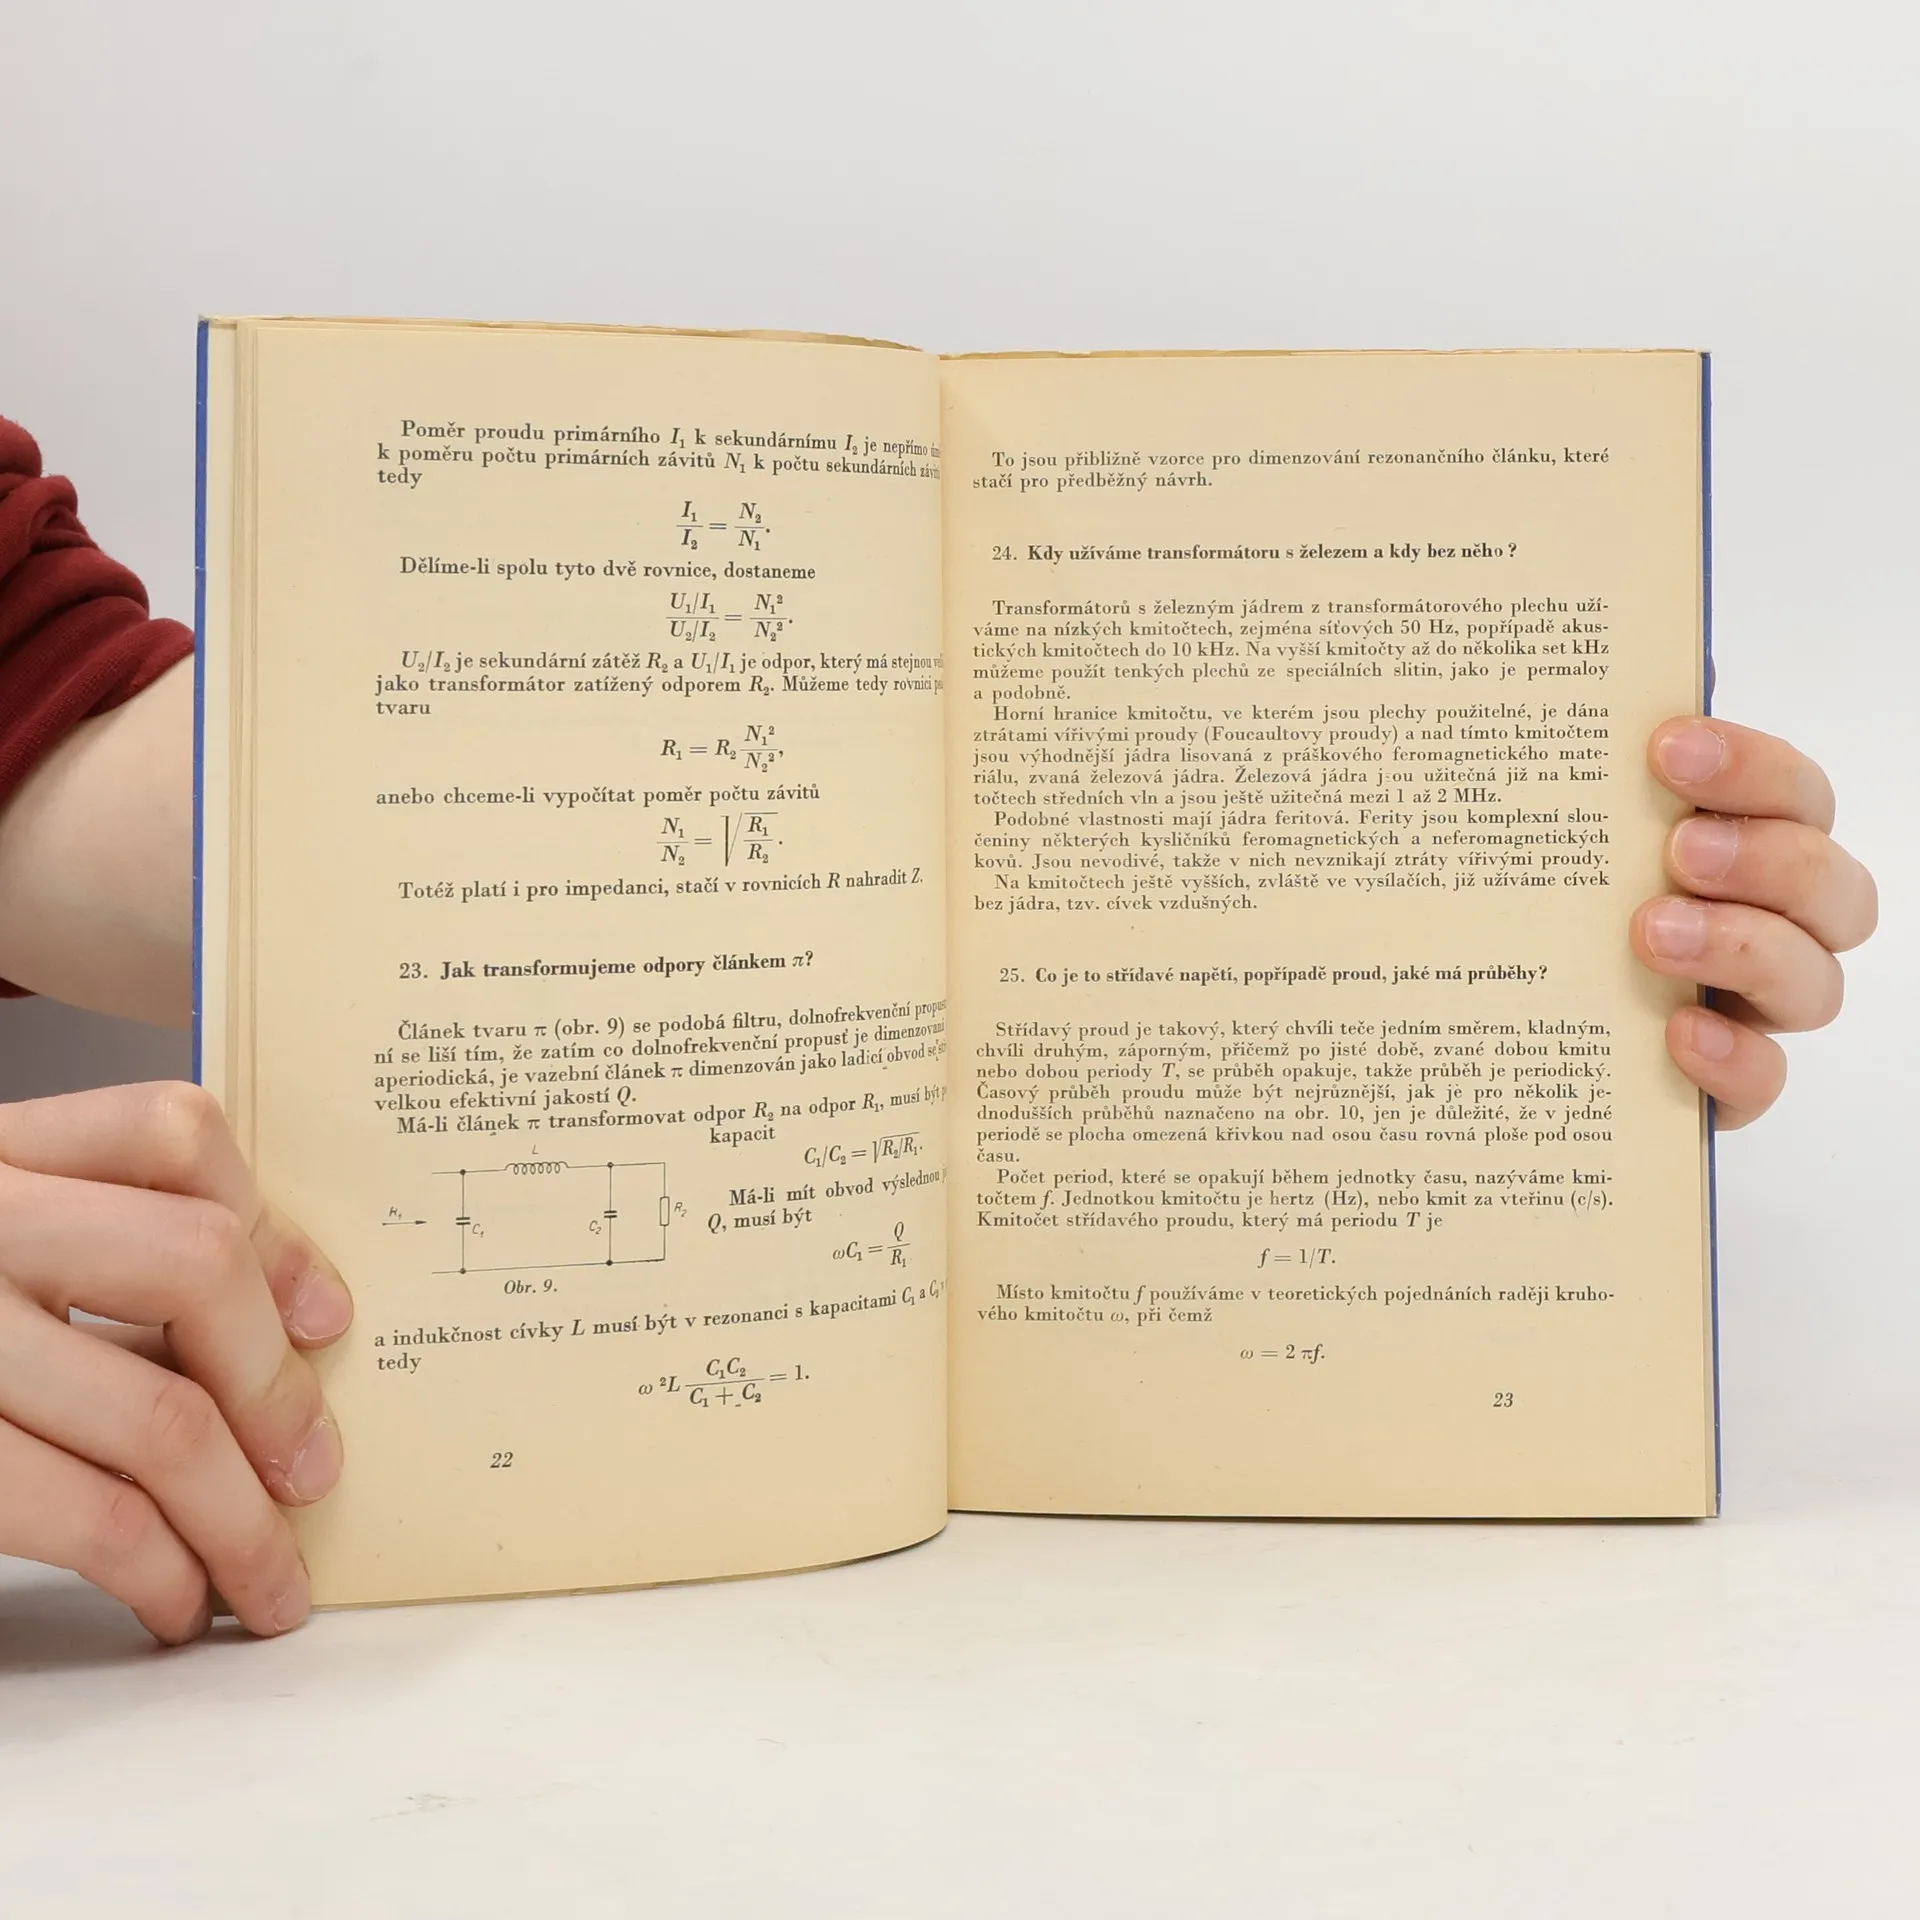 Poměr proudu primárního I₁ k sekundárnímu I₂ je nepřímo
k poměru počtu primárních závitů N₁ k počtu sekundárních
tedy
I₁/I₂ = N₂/N₁.
Dělíme-li spolu tyto dvě rovnice, dostaneme
(U₁/I₁)/(U₂/I₂) = N₁²/N₂².
U₂/I₂ je sekundární zátěž R₂ a U₁/I₁ je odpor, který má stejnou
jako transformátor zatížený odporem R₂. Můžeme tedy rovnici
tvaru
R₁ = R₂ N₁²/N₂²,
anebo chceme-li vypočítat poměr počtu závitů
N₁/N₂ = √(R₁/R₂).
Totéž platí i pro impedanci, stačí v rovnicích R nahradit Z.
23. Jak transformujeme odpory článkem π?
Článek tvaru π (obr. 9) se podobá filtru, dolnofrekvenční
ní se liší tím, že zatím co dolnofrekvenční propusť je dimenzována
aperiodická, je vazební článek π dimenzován jako ladicí obvod se
velkou efektivní jakostí Q.
Má-li článek π transformovat odpor R₂ na odpor R₁, musí být
kapacit
C₁/C₂ = √R₂/R₁.
Má-li mít obvod výslednou
Q, musí být
ωC₁ = Q/R₁
L
R₁
C₁
C₂
R₂
Obr. 9.
a indukčnost cívky L musí být v rezonanci s kapacitami C₁ a C₂
tedy
ω ²L C₁C₂/(C₁ + C₂) = 1.
22
To jsou přibližně vzorce pro dimenzování rezonančního článku, které
stačí pro předběžný návrh.
24. Kdy užíváme transformátoru s železem a kdy bez něho ?
Transformátorů s železným jádrem z transformátorového plechu uží-
váme na nízkých kmitočtech, zejména síťových 50 Hz, popřípadě akus-
tických kmitočtech do 10 kHz. Na vyšší kmitočty až do několika set kHz
můžeme použít tenkých plechů ze speciálních slitin, jako je permaloy
a podobně.
Horní hranice kmitočtu, ve kterém jsou plechy použitelné, je dána
ztrátami vířivými proudy (Foucaultovy proudy) a nad tímto kmitočtem
jsou výhodnější jádra lisovaná z práškového feromagnetického mate-
riálu, zvaná železová jádra. Železová jádra jsou užitečná již na kmi-
točtech středních vln a jsou ještě užitečná mezi 1 až 2 MHz.
Podobné vlastnosti mají jádra feritová. Ferity jsou komplexní slou-
čeniny některých kysličníků feromagnetických a neferomagnetických
kovů. Jsou nevodivé, takže v nich nevznikají ztráty vířivými proudy.
Na kmitočtech ještě vyšších, zvláště ve vysílačích, již užíváme cívek
bez jádra, tzv. cívek vzdušných.
25. Co je to střídavé napětí, popřípadě proud, jaké má průběhy?
Střídavý proud je takový, který chvíli teče jedním směrem, kladným,
chvíli druhým, záporným, přičemž po jisté době, zvané dobou kmitu
nebo dobou periody T, se průběh opakuje, takže průběh je periodický.
Časový průběh proudu může být nejrůznější, jak je pro několik je-
dnodušších průběhů naznačeno na obr. 10, jen je důležité, že v jedné
periodě se plocha omezená křivkou nad osou času rovná ploše pod osou
času.
Počet period, které se opakují během jednotky času, nazýváme kmi-
točtem f. Jednotkou kmitočtu je hertz (Hz), nebo kmit za vteřinu (c/s).
Kmitočet střídavého proudu, který má periodu T je
f = 1/T.
Místo kmitočtu f používáme v teoretických pojednáních raději kruho-
vého kmitočtu ω, při čemž
ω = 2 πf.
23